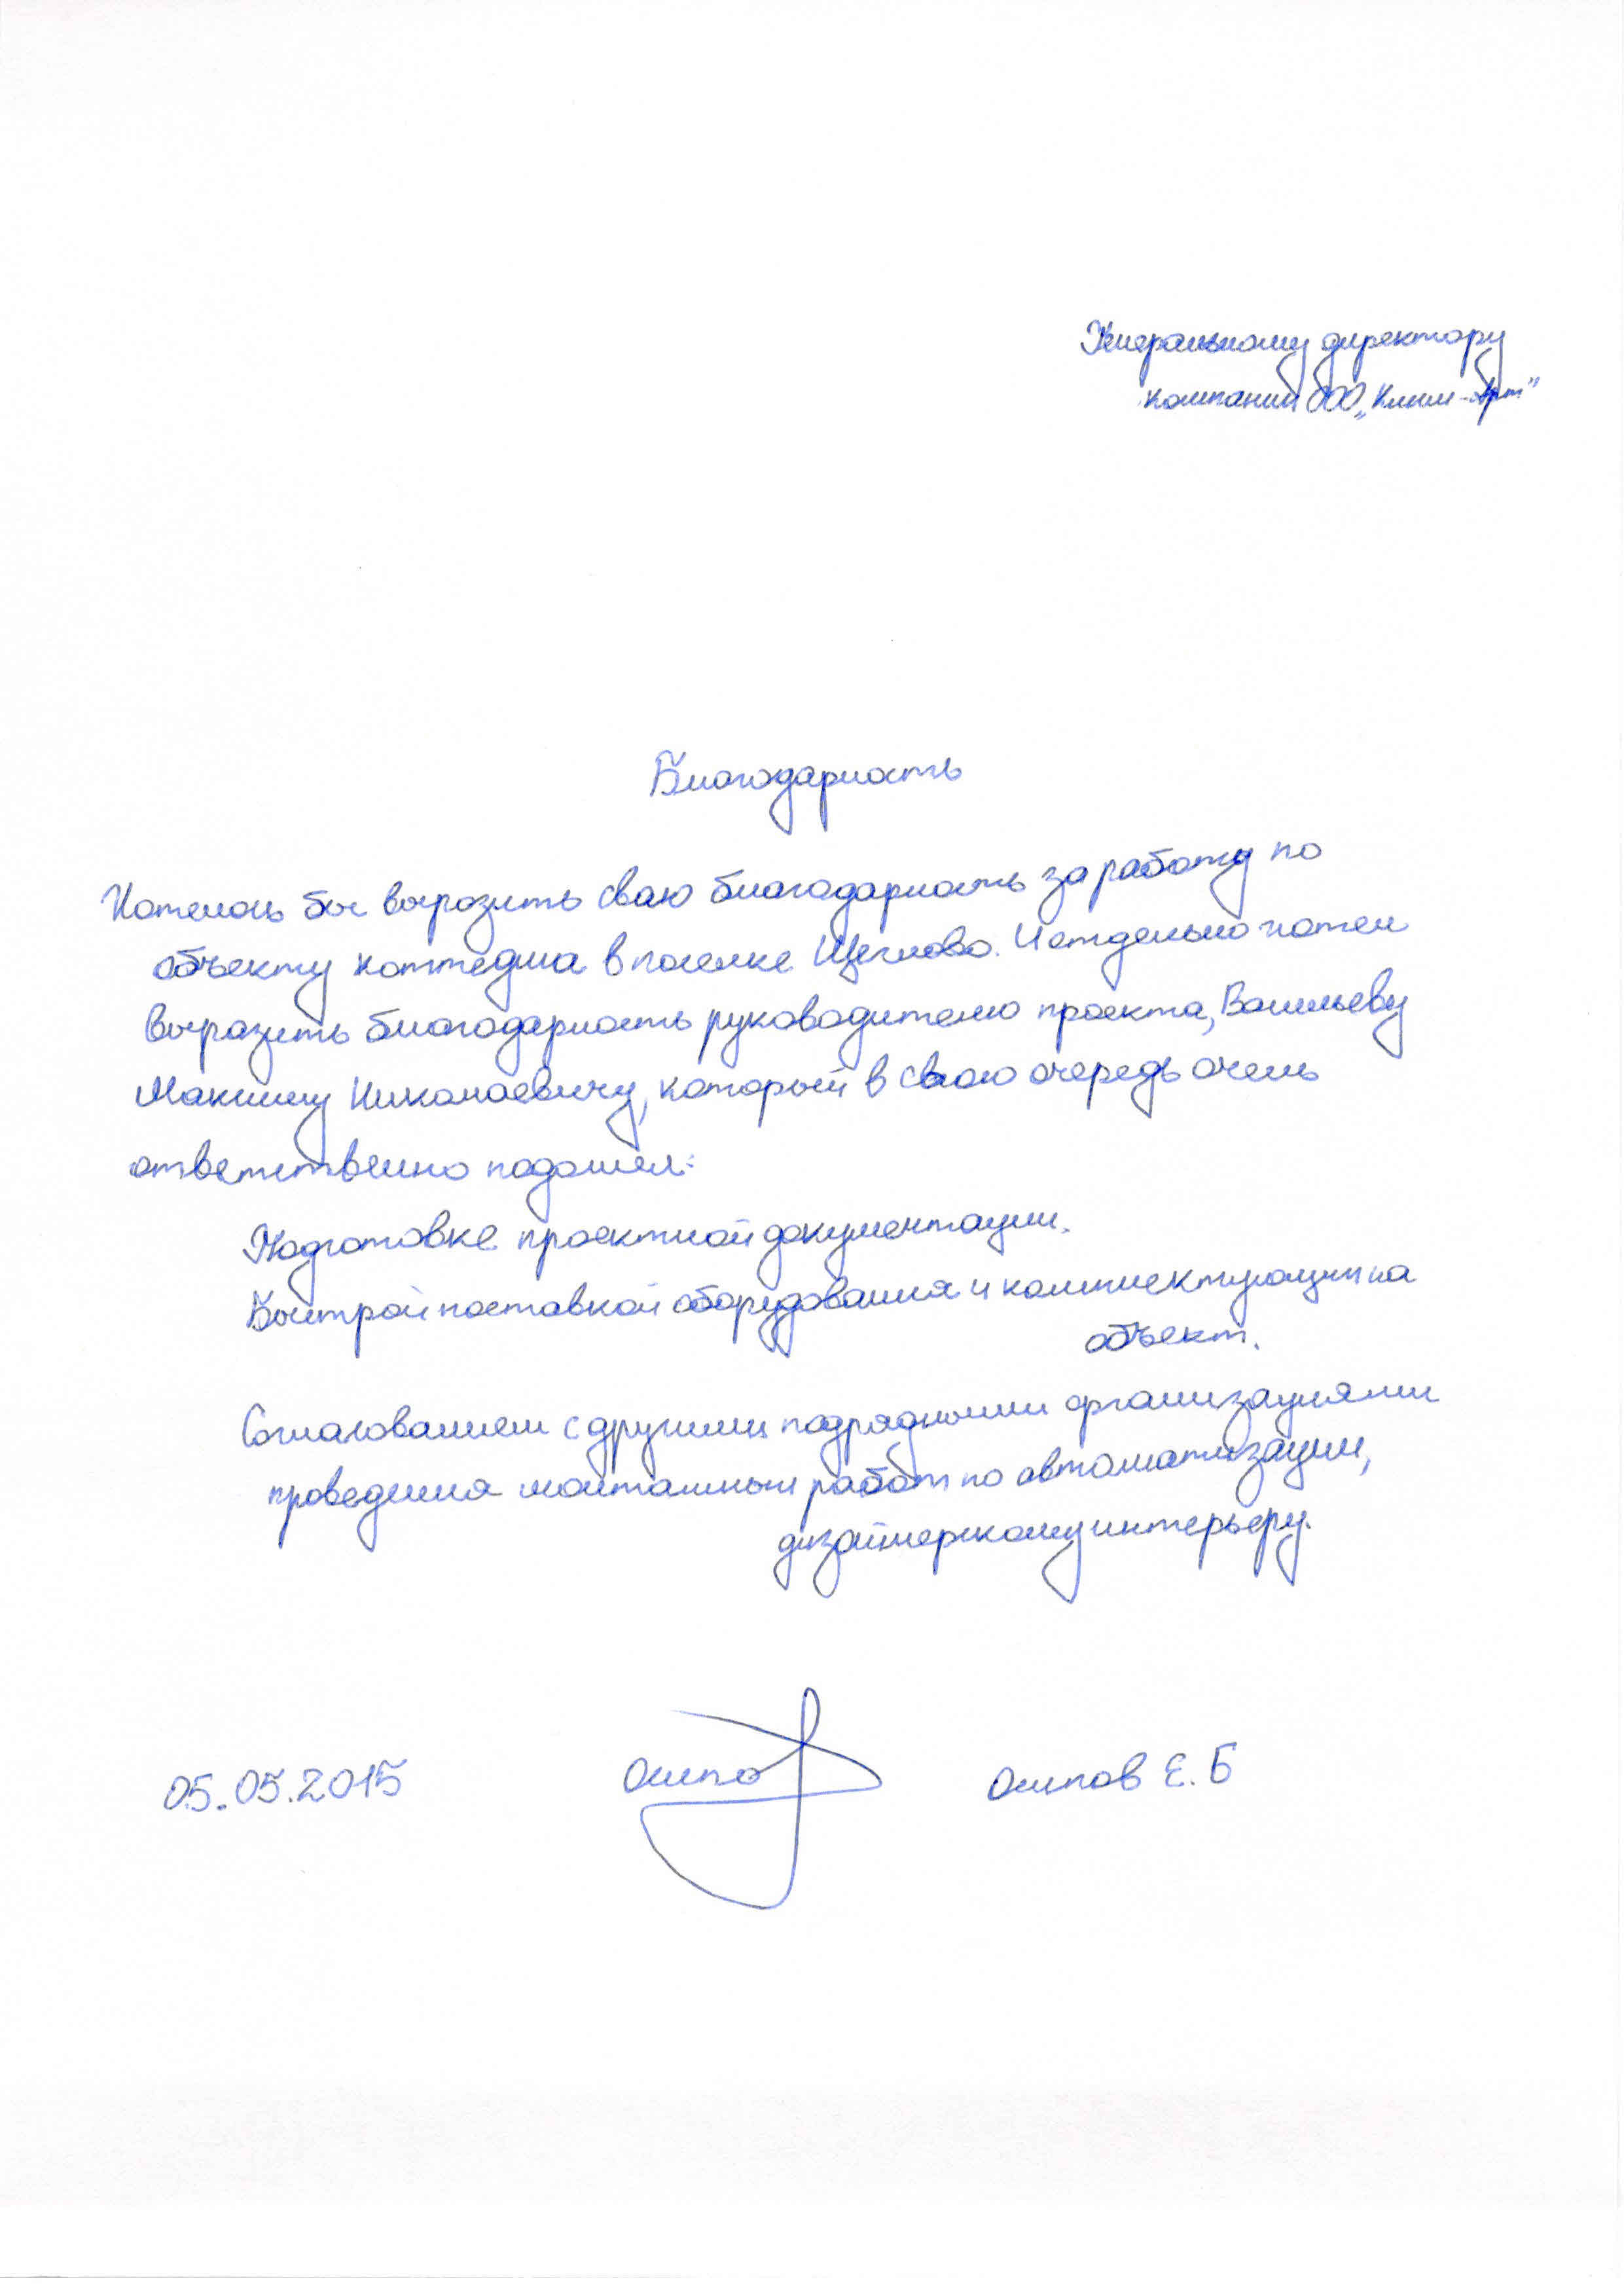 Генеральному директору
компании ООО „Клим-Арт"
Благодарность
Хотелось бы выразить свою благодарность за работу по
объекту коттеджа в поселке Щеглово. И отдельно хотел
выразить благодарность руководителю проекта, Васильеву
Максиму Николаевичу, который в свою очередь очень
ответственно подошел:
Подготовке проектной документации.
Быстрой поставкой оборудования и комплектующих на
объект.
Согласованием с другими подрядными организациями
проведения монтажных работ по автоматизации,
дизайнерскому интерьеру.
05.05.2015 Осипо Осипов Е. Б